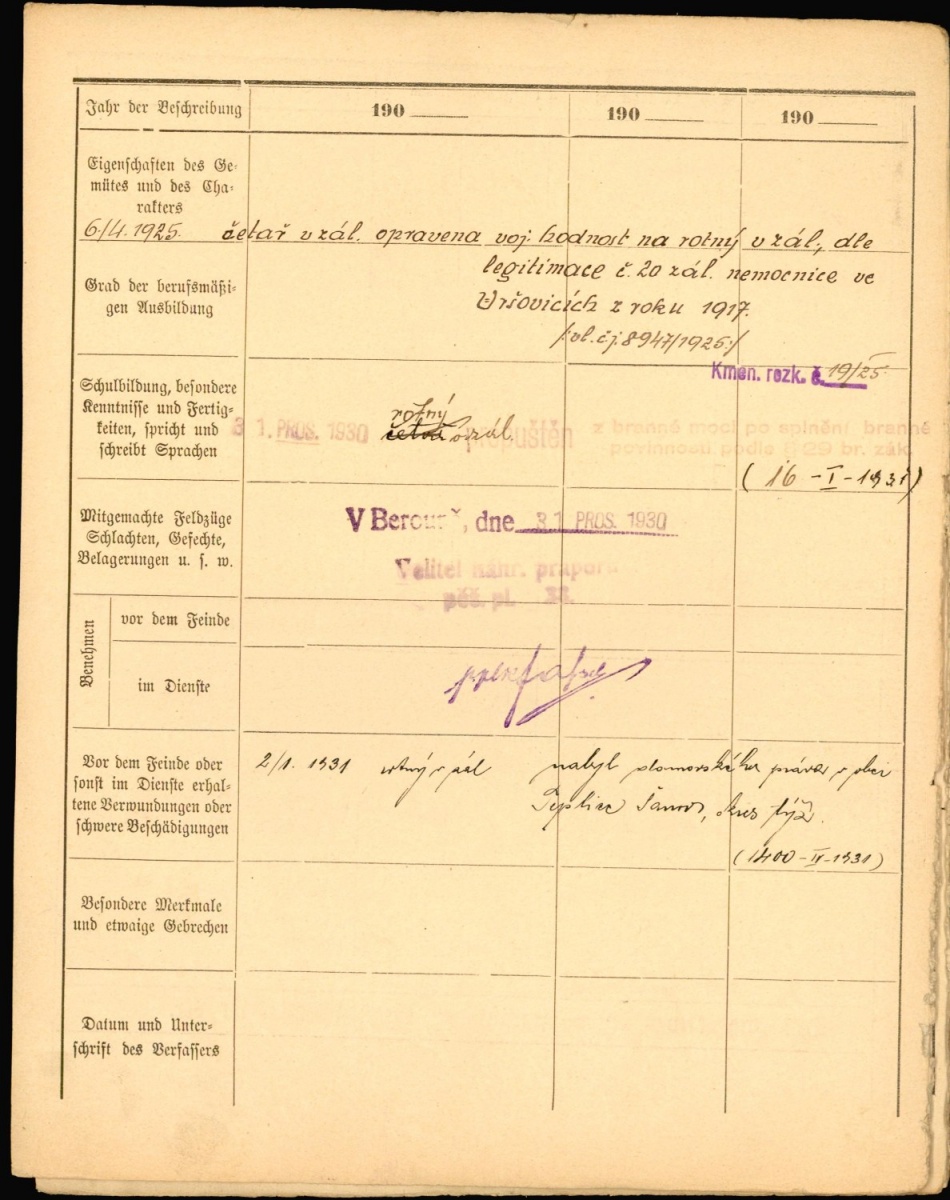 Jahr der Beschreibung 190 190 190
Eigenschaften des Ge-
mütes und des Cha-
rakters
6./4. 1925. četař v zál. opravena voj. hodnost na rotný v zál., dle
legitimace č. 20 zál. nemocnice ve
Vršovicích z roku 1917.
/:vl. čj. 8947/1925:/
Grad der berufsmäßi-
gen Ausbildung
Kmen. rozk. č. 19/25.
Schulbildung, besondere
Kenntnisse und Fertig-
keiten, spricht und
schreibt Sprachen
rotný
31. PROS. 1930 četař v zál. propuštěn z branné moci po splnění branné
povinnosti podle § 29 br. zák.
(16 - I - 1931)
Mitgemachte Feldzüge
Schlachten, Gefechte,
Belagerungen u. s. w.
V Berouně, dne 31 PROS. 1930
Velitel náhr. praporu
pěš. pl.
Benehmen
vor dem Feinde
im Dienste
Vor dem Feinde oder
sonst im Dienste erhal-
tene Verwundungen oder
schwere Beschädigungen
2/1. 1931 rotný v zál nabyl domovského práva v obci
Teplice Šanov, okres týž.
(1400 - IV - 1931)
Besondere Merkmale
und etwaige Gebrechen
Datum und Unter-
schrift des Verfassers